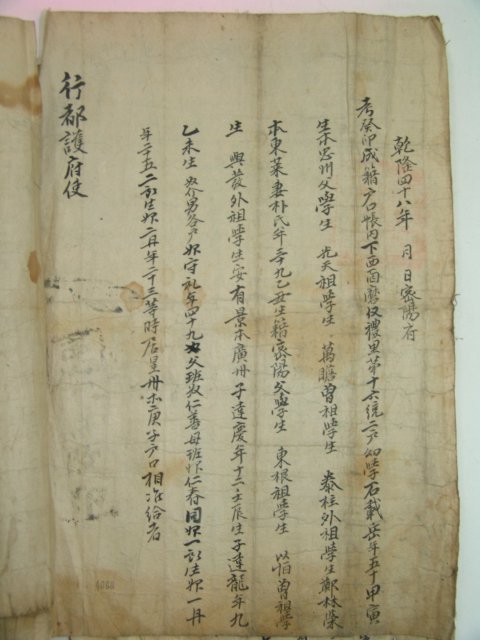 乾隆四十八年 月 日密陽府
考癸卯成籍戶口帳內下西面禮里第十六統二戶幼學石載岳年五十甲寅
生本忠州父學生 光天祖學生 萬瞻曾祖學生 泰柱外祖學生鄭林榮
本東萊妻朴氏年三十九乙丑生籍密陽父學生 東根祖學生 以怕曾祖學
生 興發外祖學生安有景本廣州子達慶年十二壬辰生子達龍年九
乙未生奴介男各戶婢守礼年四十九父班奴仁善母班婢仁春同婢一所生婢一丹
年二十五二所生婢二丹年二十三等時居星州庚子戶口相准給者
行都護府使
4068